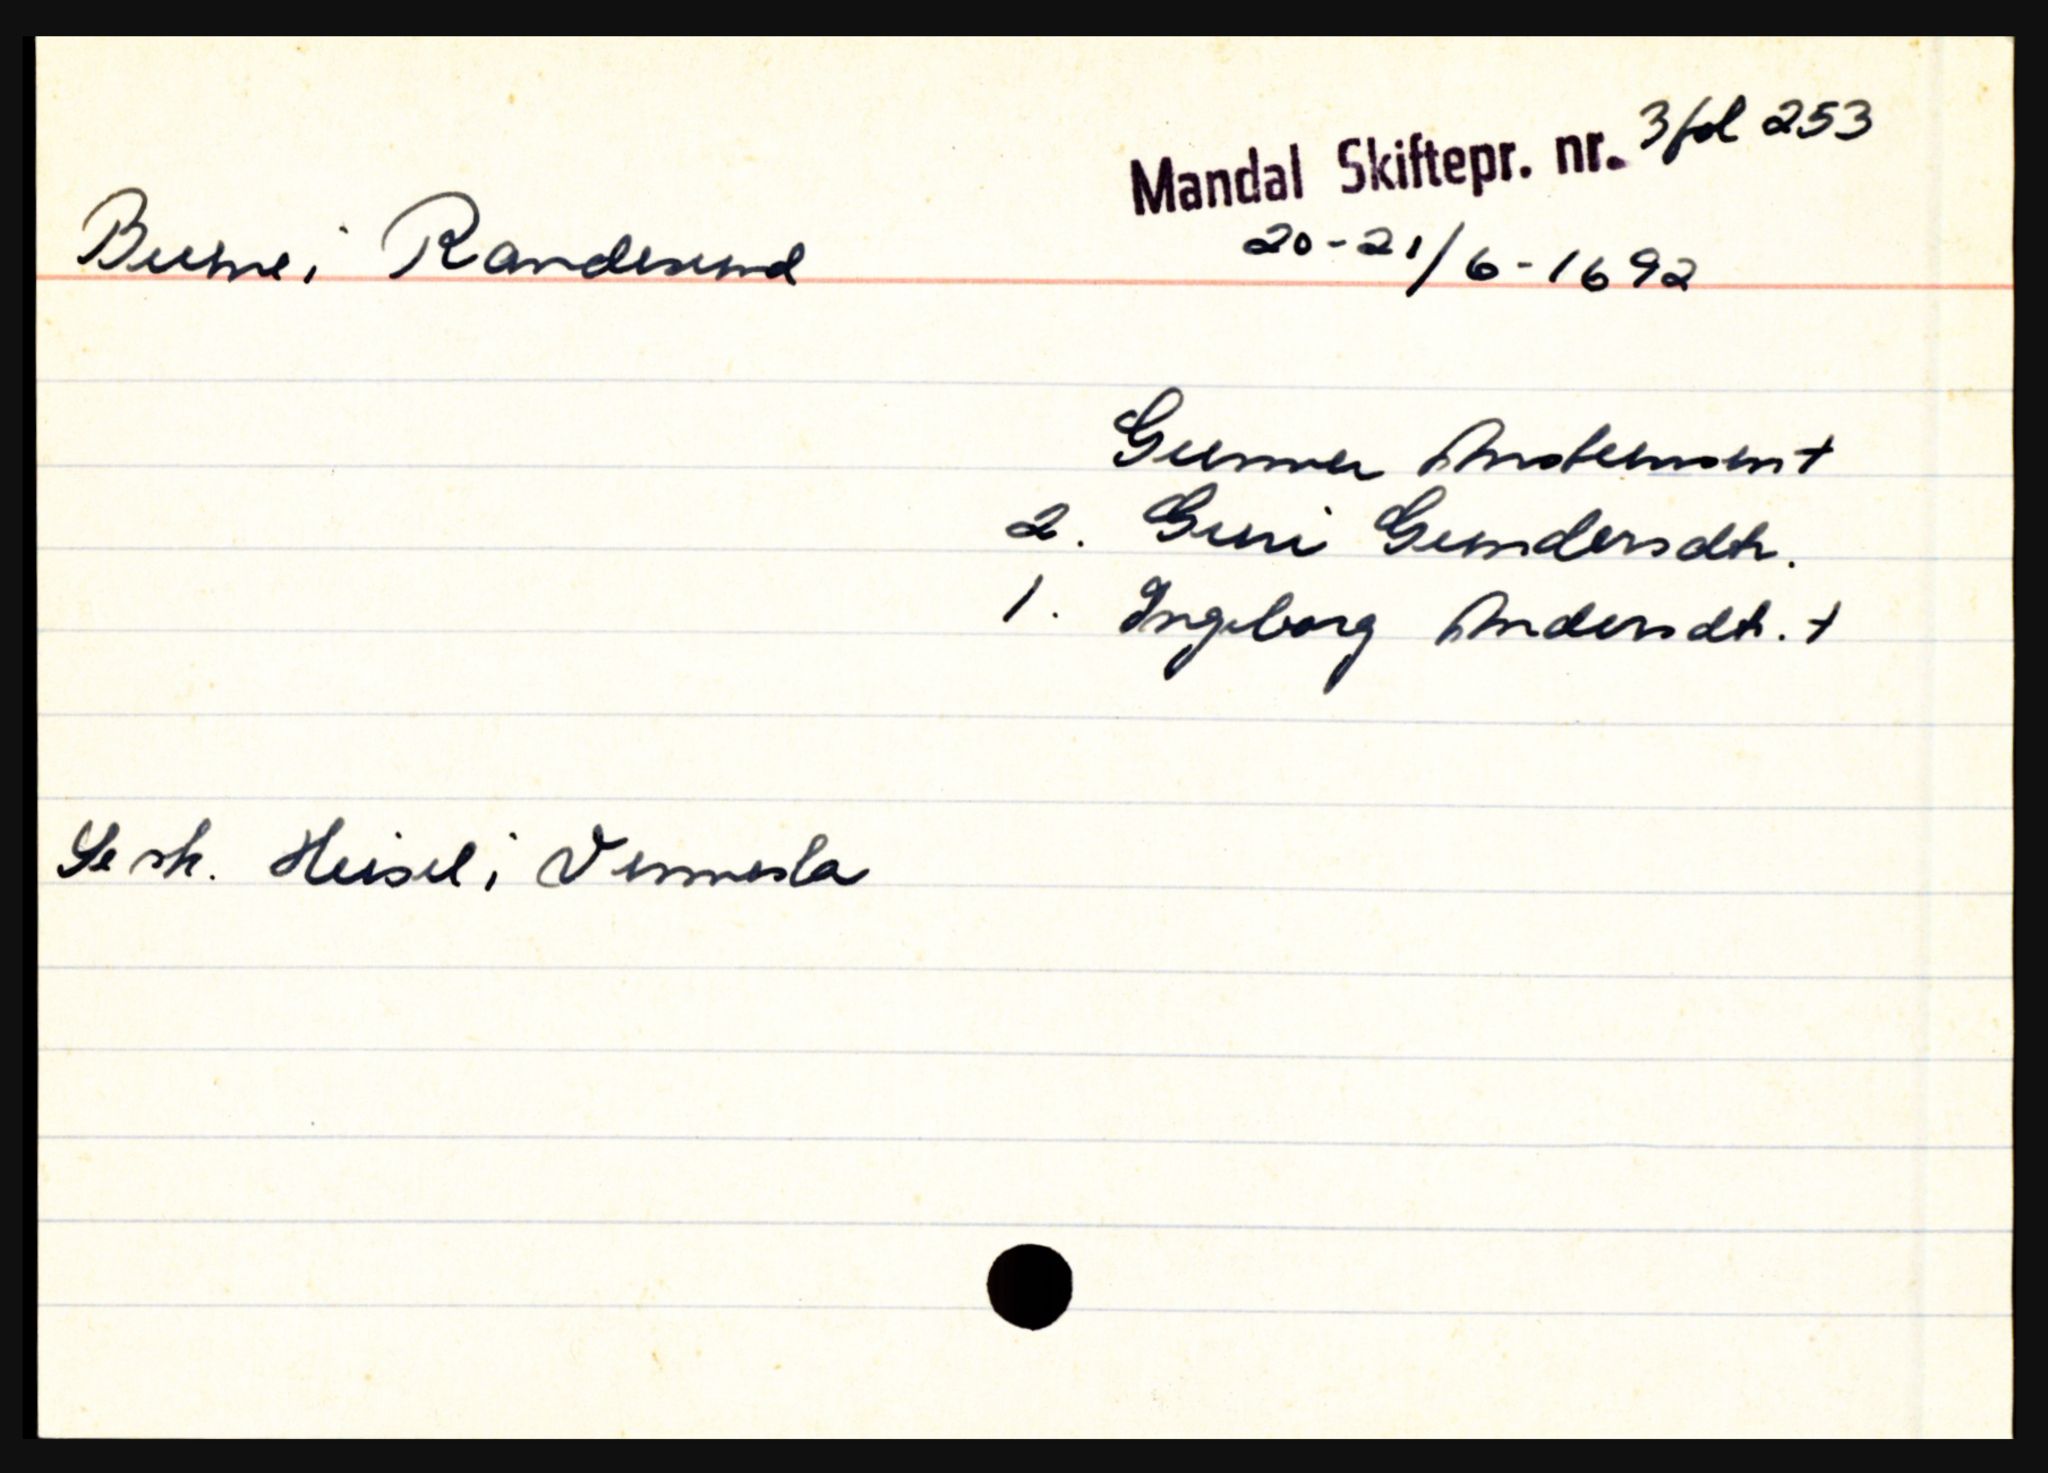 Mandal Skiftepr. nr. 3 fol 253
Bune i Randesund
20-21/6-1692
Gunner Anstenson +
2. Guri Gundersdtr.
1. Ingeborg Andersdtr. +
Se sk. Heisel i Vennesla